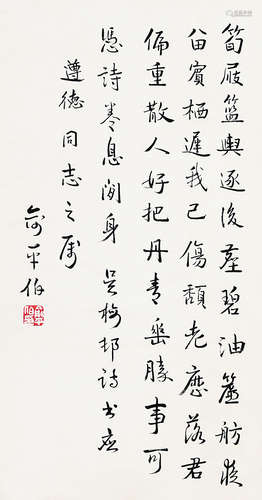 筍屐籃輿逐後塵碧油簾舫夜
畄賓栖遲我已傷頹老厯落君
偏重散人好把丹青垂勝事可
憑詩卷息閒身 吳梅邨詩書應
遵德同志之属
俞平伯